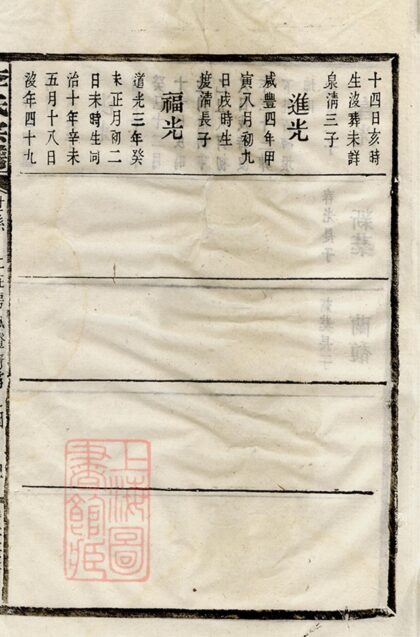 十四日亥時
生沒葬未詳
泉清三子
進光
咸豐四年甲
寅八月初九
日戌時生
援清長子
福光
道光三年癸
未正月初二
日未時生同
治十年辛未
五月十八日
沒年四十九
上海圖
書館藏